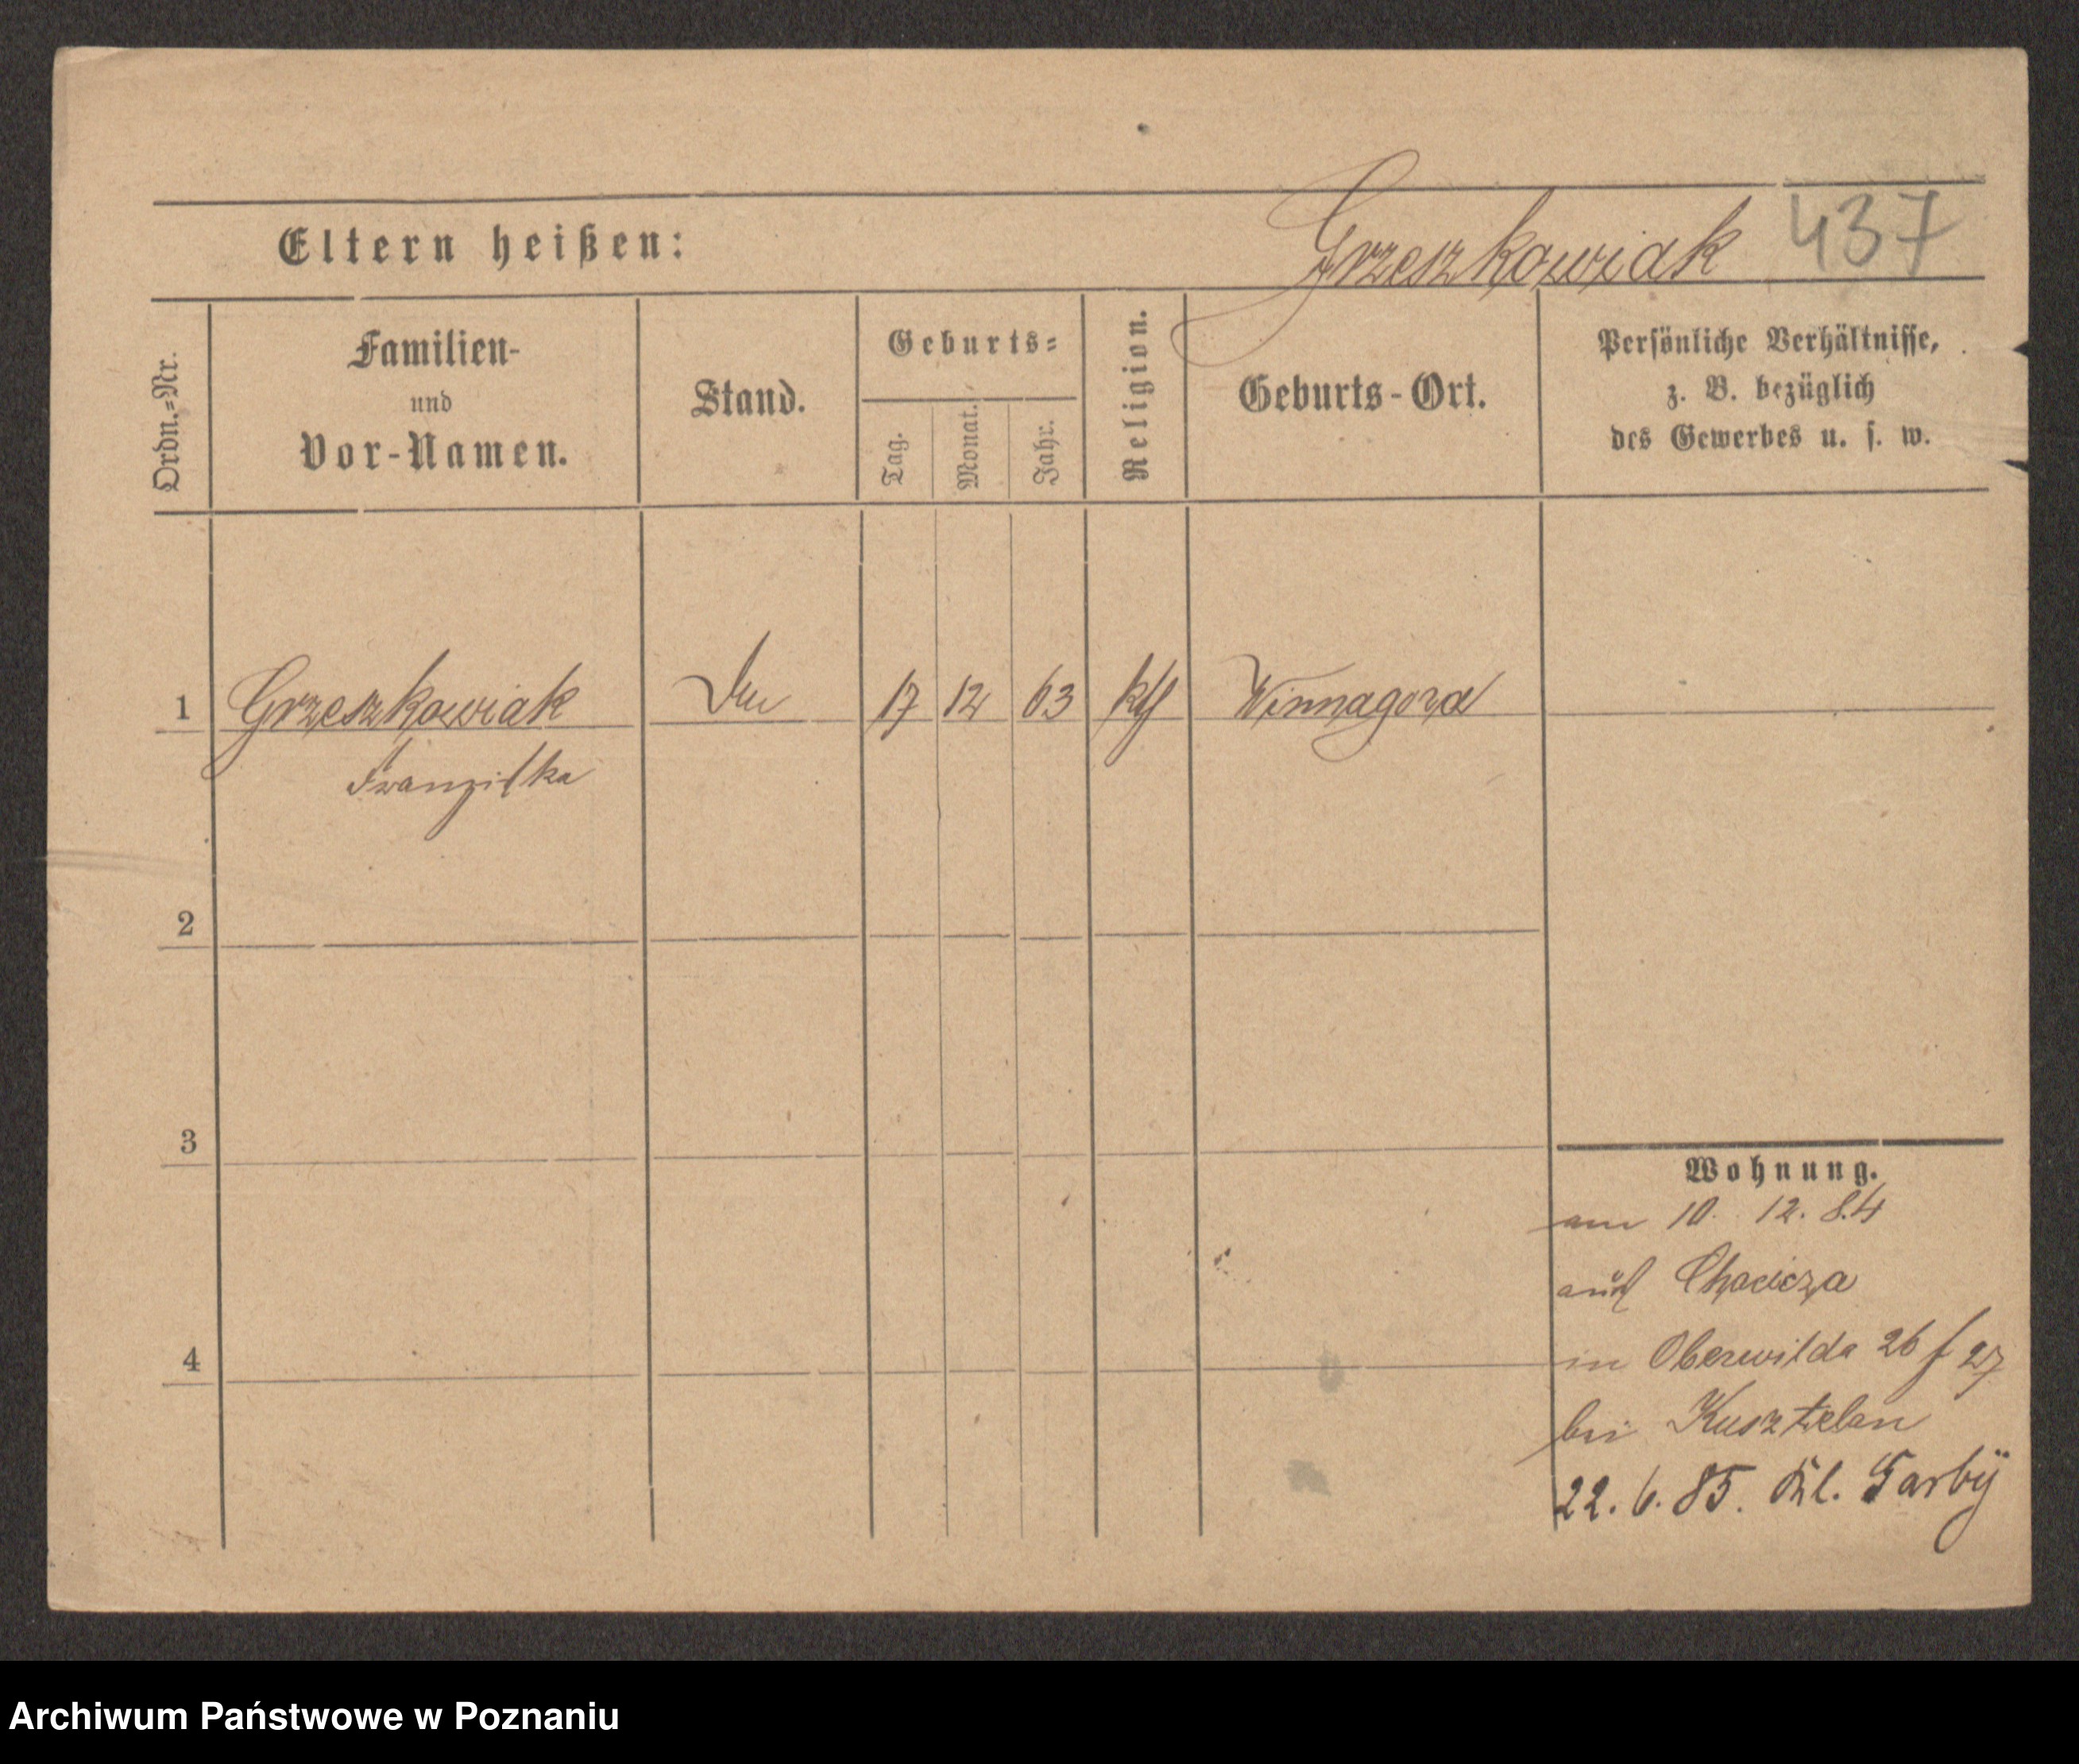 Eltern heißen:
Grzeszkowiak 437
Ordn.=Nr.
Familien-
und
Vor-Namen.
Stand.
Geburts=
Tag.
Monat.
Jahr.
Religion.
Geburts-Ort.
Persönliche Verhältnisse,
z. B. bezüglich
des Gewerbes u. s. w.
1 Grzeszkowiak 17 12 63 kth Winnagora
Franziska
2
3
4
Wohnung.
am 10. 12. 84
aus Chocicza
in Oberwilda 26 / 27
bei Kusztelan
22. 6. 85. Kl. Garby
Archiwum Państwowe w Poznaniu